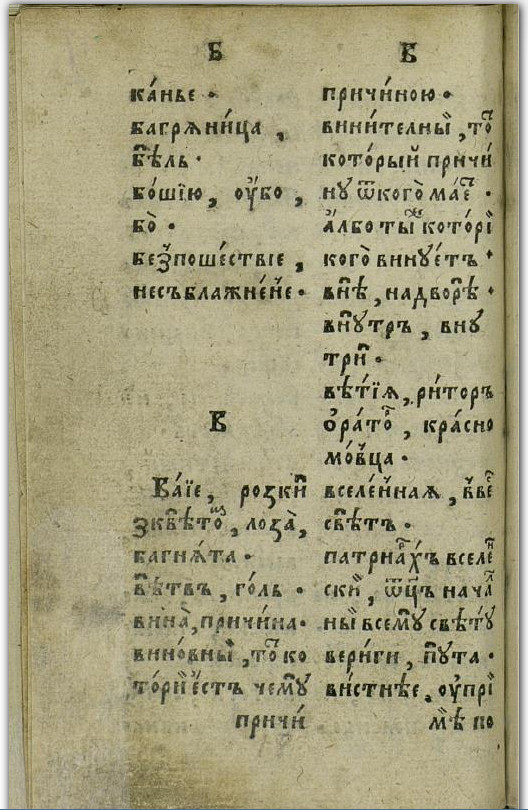 Б
ка́нье ·
багрѧни́ца ,
бѣ́ль ·
бо́шїю , оу҆бо ,
бо̀ ·
безпоше́ствіе ,
несъблажне́нїе ·
В
Ва́їе , розки
зквѣ́то , лоза̀ ,
багнѧ́та ·
вѣ́твъ , го́ль ·
вина̀ , причи́на ·
вино́вный , то ко
то́рий е҆стъ чемꙋ
причи́
В
причи́ною ·
вини́телный , то
кото́рый причи́
нꙋ ѿкого̀ ма́е ·
а҆лбо ты кото́рі
кого̀ винꙋ́етъ ·
внѣ̀ , надво́рѣ ·
внꙋтръ , внꙋ
три ·
вѣ́тїѧ , ри́торъ
ѻ҆ра́то , кра́сно
мо́вца ·
вселе́ннаѧ , вве
свѣ́тъ ·
патриа́рхъ вселе
ски , ѿц҃ъ нача
ны всемꙋ свѣ́тꙋ
вери́ги , пꙋ́та ·
вистнѣе , оу҆прі
мѣ по